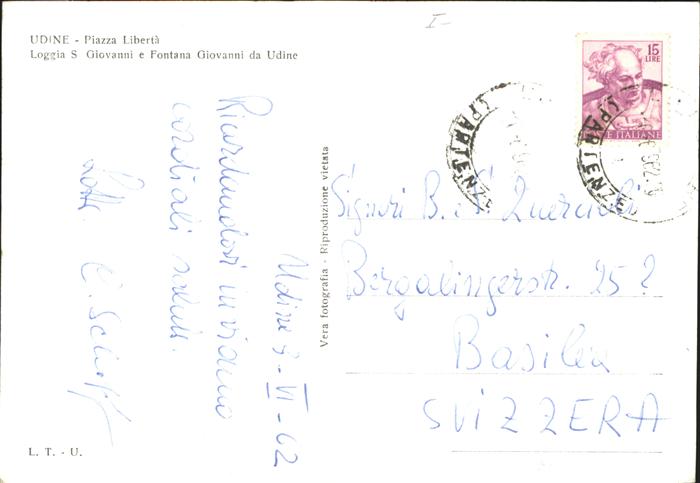 UDINE - Piazza Libertà
Loggia S Giovanni e Fontana Giovanni da Udine
I-
15
LIRE
POSTE ITALIANE
PARTENZE
PARTENZE
Udine 8-VI-62
Ricordandosi inviano
cordiali saluti.
Lotte
Vera fotografia - Riproduzione vietata
Signori B. e
Bergalingerstr. 25?
Basilea
SVIZZERA
L. T. - U.